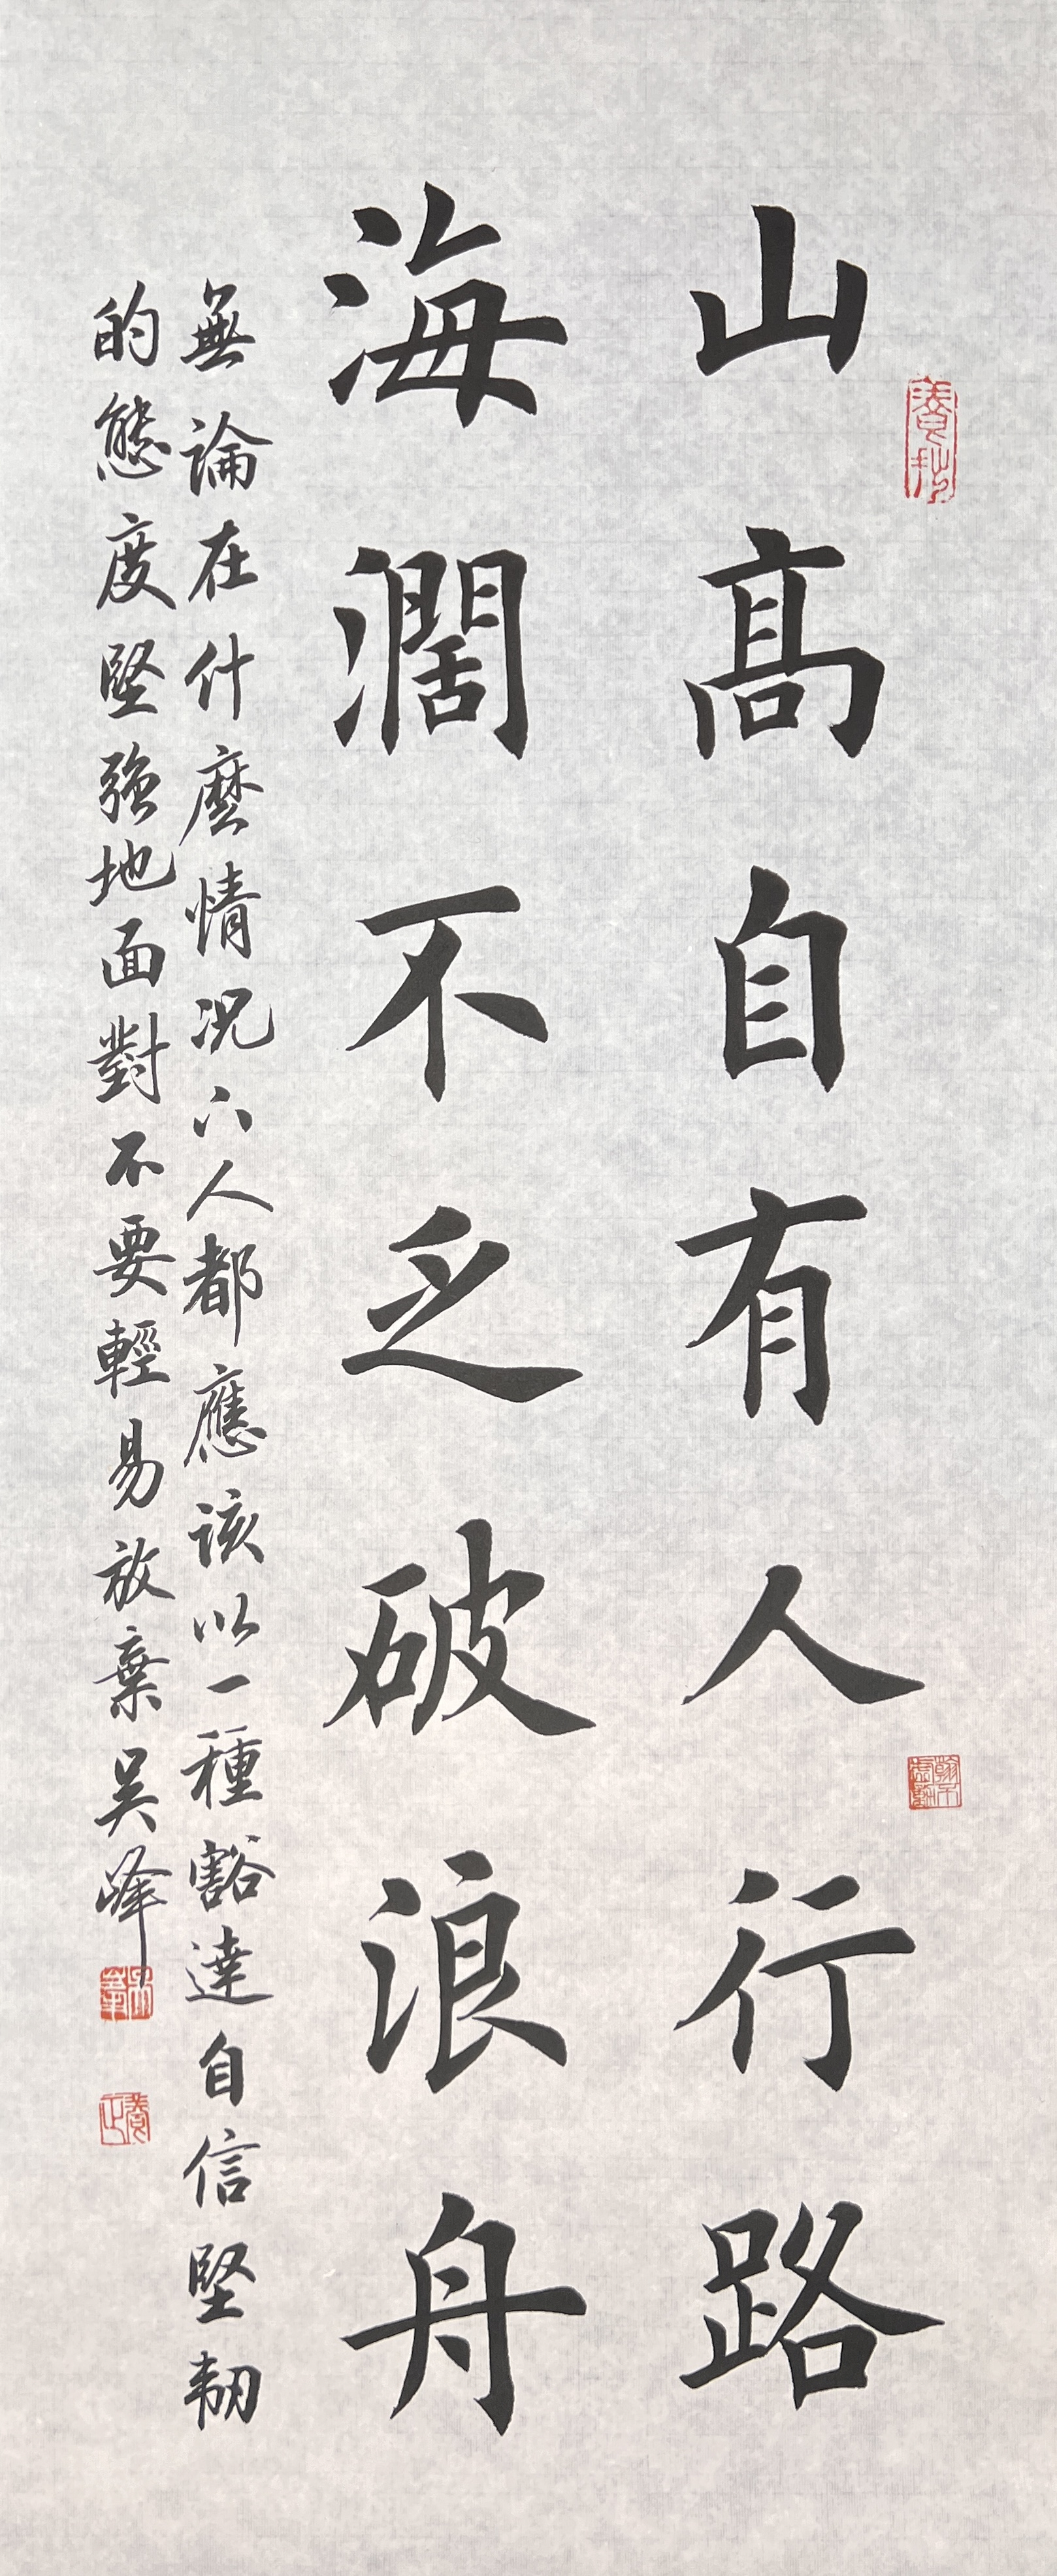 山高自有人行路
海濶不乏破浪舟
無論在什麼情况六人都應該以一種豁達自信堅韧
的態度堅強地面對不要輕易放棄吴峰